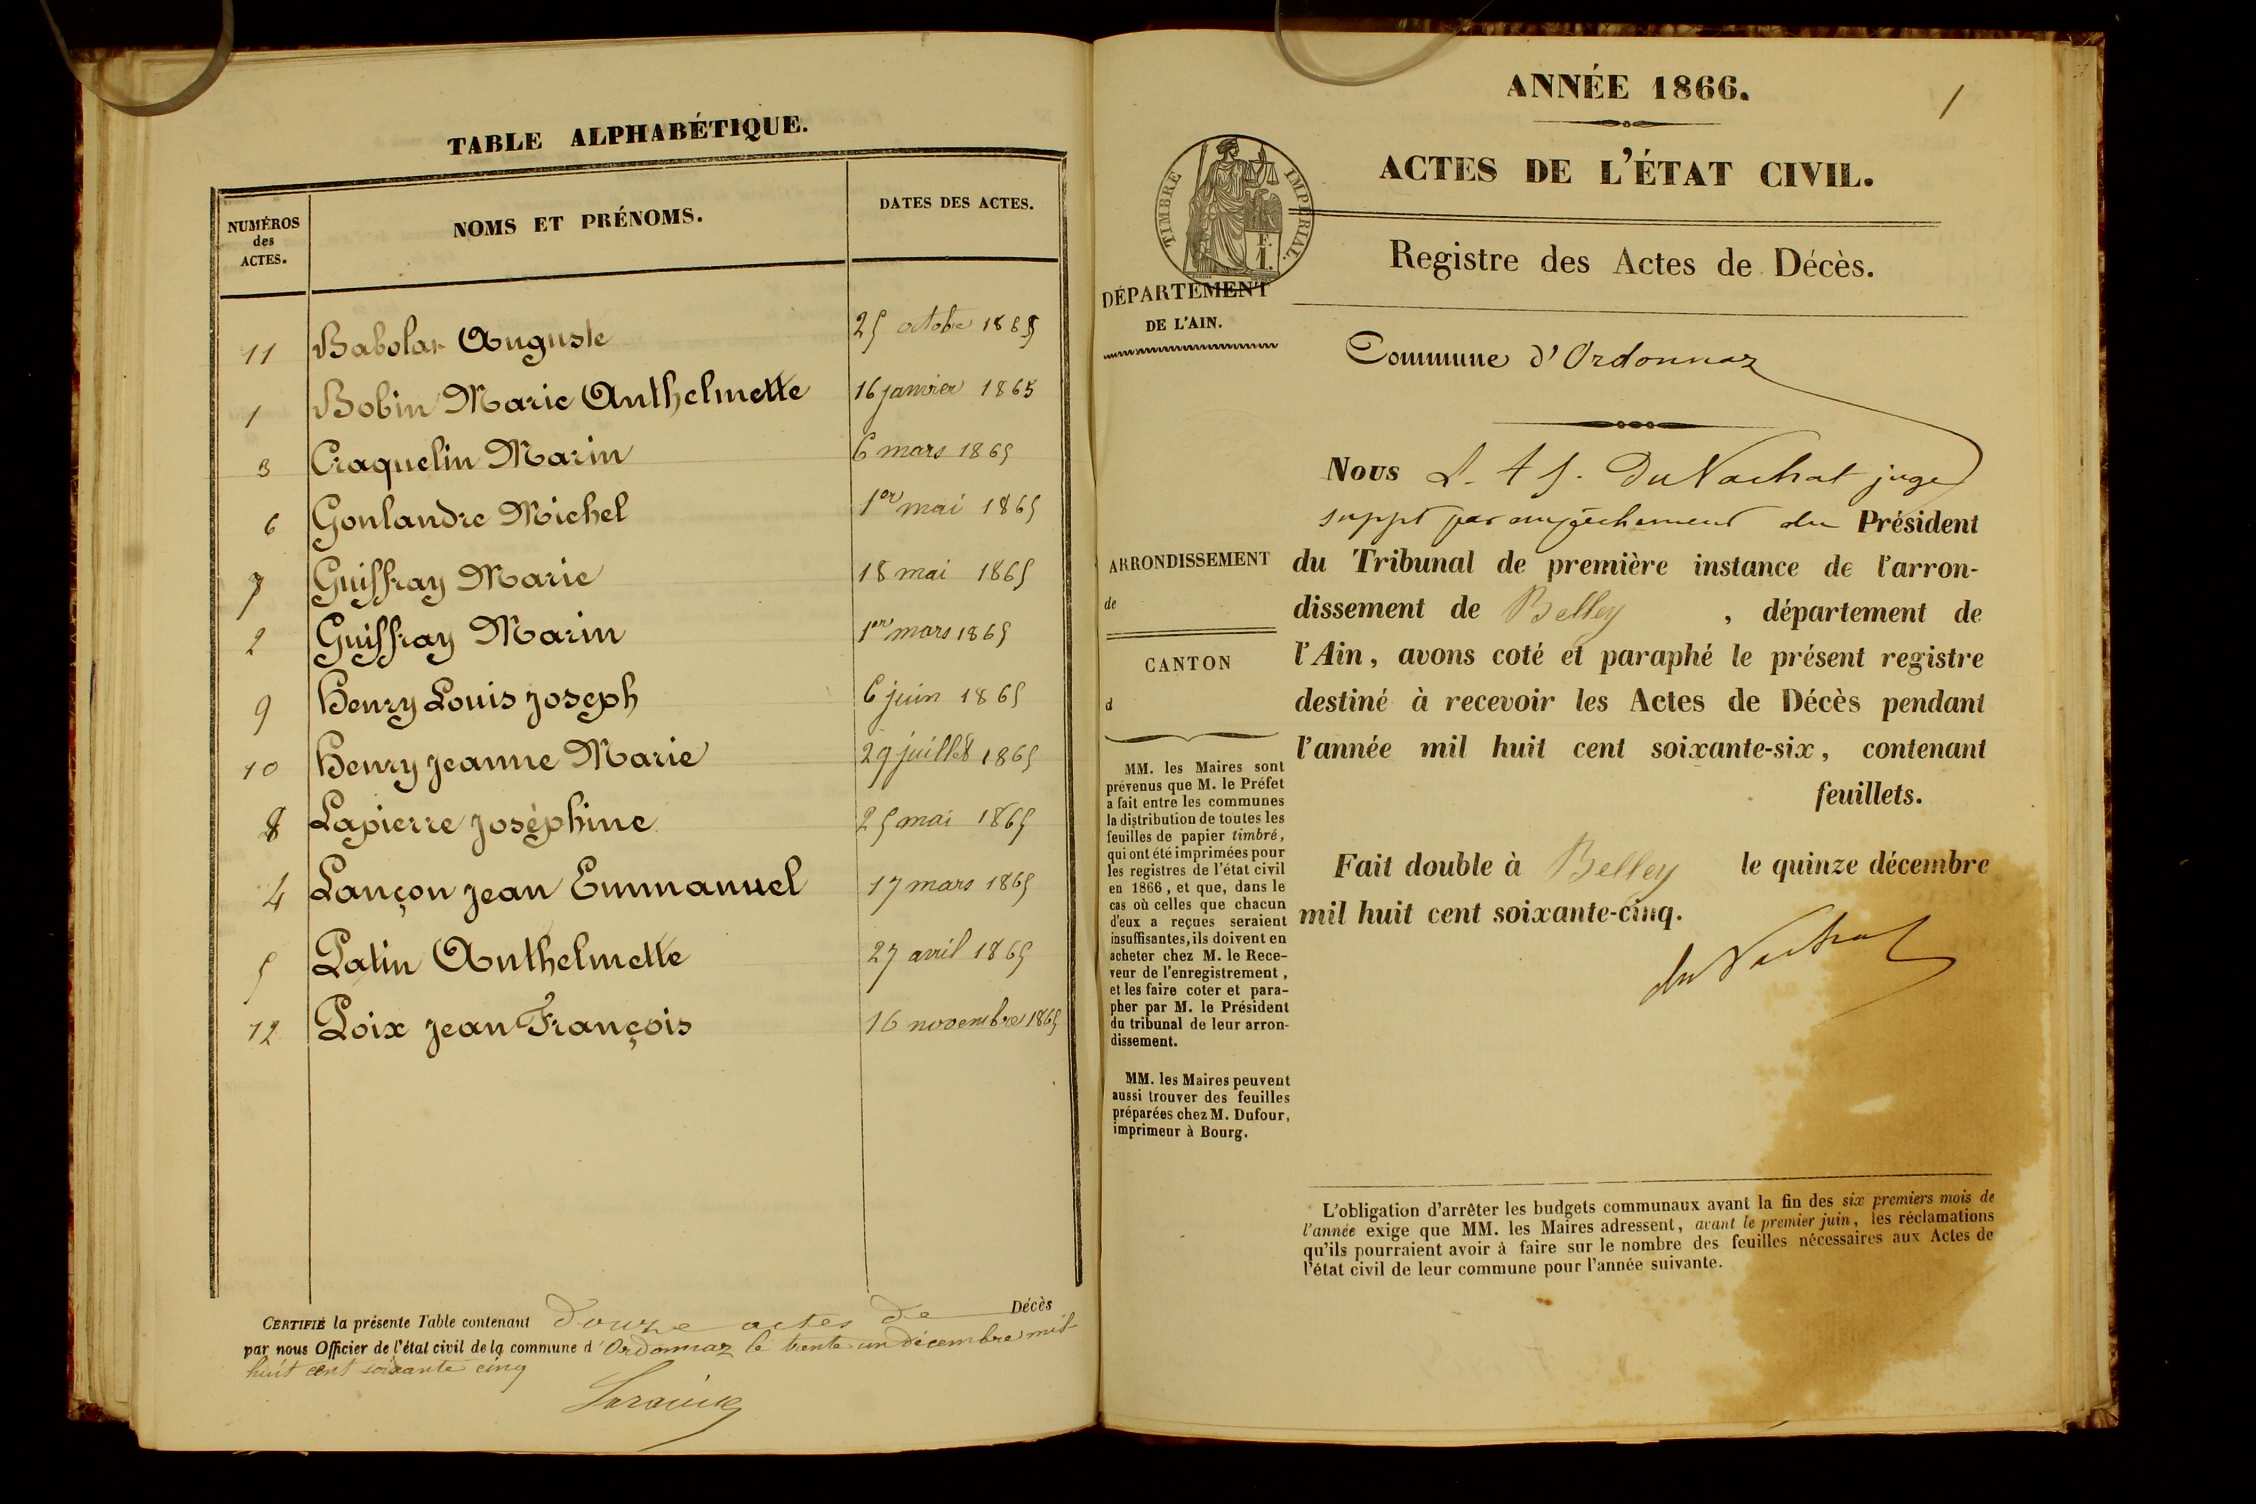 TABLE ALPHABÉTIQUE.
NUMÉROS des ACTES. NOMS ET PRÉNOMS. DATES DES ACTES.
11 Babolat Auguste 25 octobre 1865
1 Bobin Marie Anthelmette 16 janvier 1865
3 Craquelin Marin 6 mars 1865
6 Gonlandre Michel 1er mai 1865
7 Guiffray Marie 18 mai 1865
2 Guiffray Marin 1er mars 1865
9 Henry Louis Joseph 6 juin 1865
10 Henry Jeanne Marie 29 juillet 1865
8 Lapierre Joséphine 25 mai 1865
4 Lançon Jean Emmanuel 17 mars 1865
5 Patin Anthelmette 27 avril 1865
12 Poix Jean François 16 novembre 1865
CERTIFIÉ la présente Table contenant douze actes de Décès
par nous Officier de l'état civil de la commune d'Ordonnaz le trente un décembre mil
huit cent soixante cinq
ANNÉE 1866.
1
ACTES DE L'ÉTAT CIVIL.
TIMBRE IMPÉRIAL.
F.
1.
Registre des Actes de Décès.
DÉPARTEMENT
DE L'AIN.
Commune d'Ordonnaz
ARRONDISSEMENT
de
CANTON
d
MM. les Maires sont
prévenus que M. le Préfet
a fait entre les communes
la distribution de toutes les
feuilles de papier timbré,
qui ont été imprimées pour
les registres de l'état civil
en 1866, et que, dans le
cas où celles que chacun
d'eux a reçues seraient
insuffisantes, ils doivent en
acheter chez M. le Rece-
veur de l'enregistrement,
et les faire coter et para-
pher par M. le Président
du tribunal de leur arron-
dissement.
MM. les Maires peuvent
aussi trouver des feuilles
préparées chez M. Dufour,
imprimeur à Bourg.
Nous Du Nachat juge
suppt par empêchement du Président
du Tribunal de première instance de l'arron-
dissement de Belley, département de
l'Ain, avons coté et paraphé le présent registre
destiné à recevoir les Actes de Décès pendant
l'année mil huit cent soixante-six, contenant
feuillets.
Fait double à Belley le quinze décembre
mil huit cent soixante-cinq.
du Nachat
L'obligation d'arrêter les budgets communaux avant la fin des six premiers mois de
l'année exige que MM. les Maires adressent, avant le premier juin, les réclamations
qu'ils pourraient avoir à faire sur le nombre des feuilles nécessaires aux Actes de
l'état civil de leur commune pour l'année suivante.